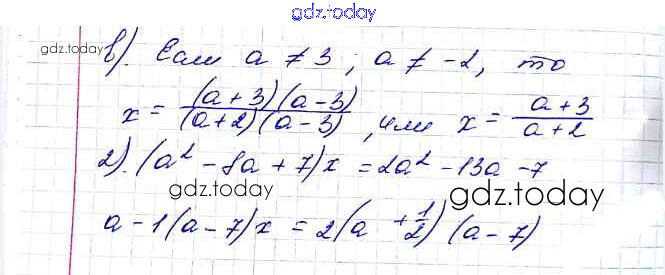 gdz.today
gdz.today
в). Если a ≠ 3 ; a ≠ -2, то
x = (a+3)(a-3)/(a+2)(a-3), или x = a+3/a+2
2). (a² - 8a + 7)x = 2a² - 13a - 7
gdz.today
gdz.today
a - 1(a - 7)x = 2(a + 1/2)(a - 7)